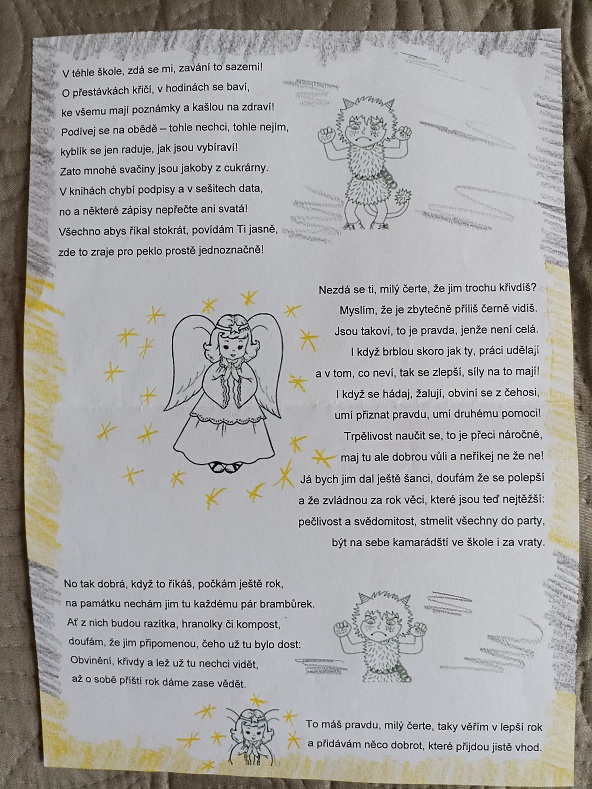 V téhle škole, zdá se mi, zavání to sazemi!
O přestávkách křičí, v hodinách se baví,
ke všemu mají poznámky a kašlou na zdraví!
Podívej se na obědě – tohle nechci, tohle nejím,
kyblík se jen raduje, jak jsou vybíraví!
Zato mnohé svačiny jsou jakoby z cukrárny.
V knihách chybí podpisy a v sešitech data,
no a některé zápisy nepřečte ani svatá!
Všechno abys říkal stokrát, povídám Ti jasně,
zde to zraje pro peklo prostě jednoznačně!
Nezdá se ti, milý čerte, že jim trochu křivdíš?
Myslím, že je zbytečně příliš černě vidíš.
Jsou takoví, to je pravda, jenže není celá.
I když brblou skoro jak ty, práci udělají
a v tom, co neví, tak se zlepší, síly na to mají!
I když se hádaj, žalují, obviní se z čehosi,
umí přiznat pravdu, umí druhému pomoci!
Trpělivost naučit se, to je přeci náročné,
maj tu ale dobrou vůli a neříkej ne že ne!
Já bych jim dal ještě šanci, doufám že se polepší
a že zvládnou za rok věci, které jsou teď nejtěžší:
pečlivost a svědomitost, stmelit všechny do party,
být na sebe kamarádští ve škole i za vraty.
No tak dobrá, když to říkáš, počkám ještě rok,
na památku nechám jim tu každému pár brambůrek.
Ať z nich budou razítka, hranolky či kompost,
doufám, že jim připomenou, čeho už tu bylo dost:
Obvinění, křivdy a lež už tu nechci vidět,
až o sobě příští rok dáme zase vědět.
To máš pravdu, milý čerte, taky věřím v lepší rok
a přidávám něco dobrot, které přijdou jistě vhod.